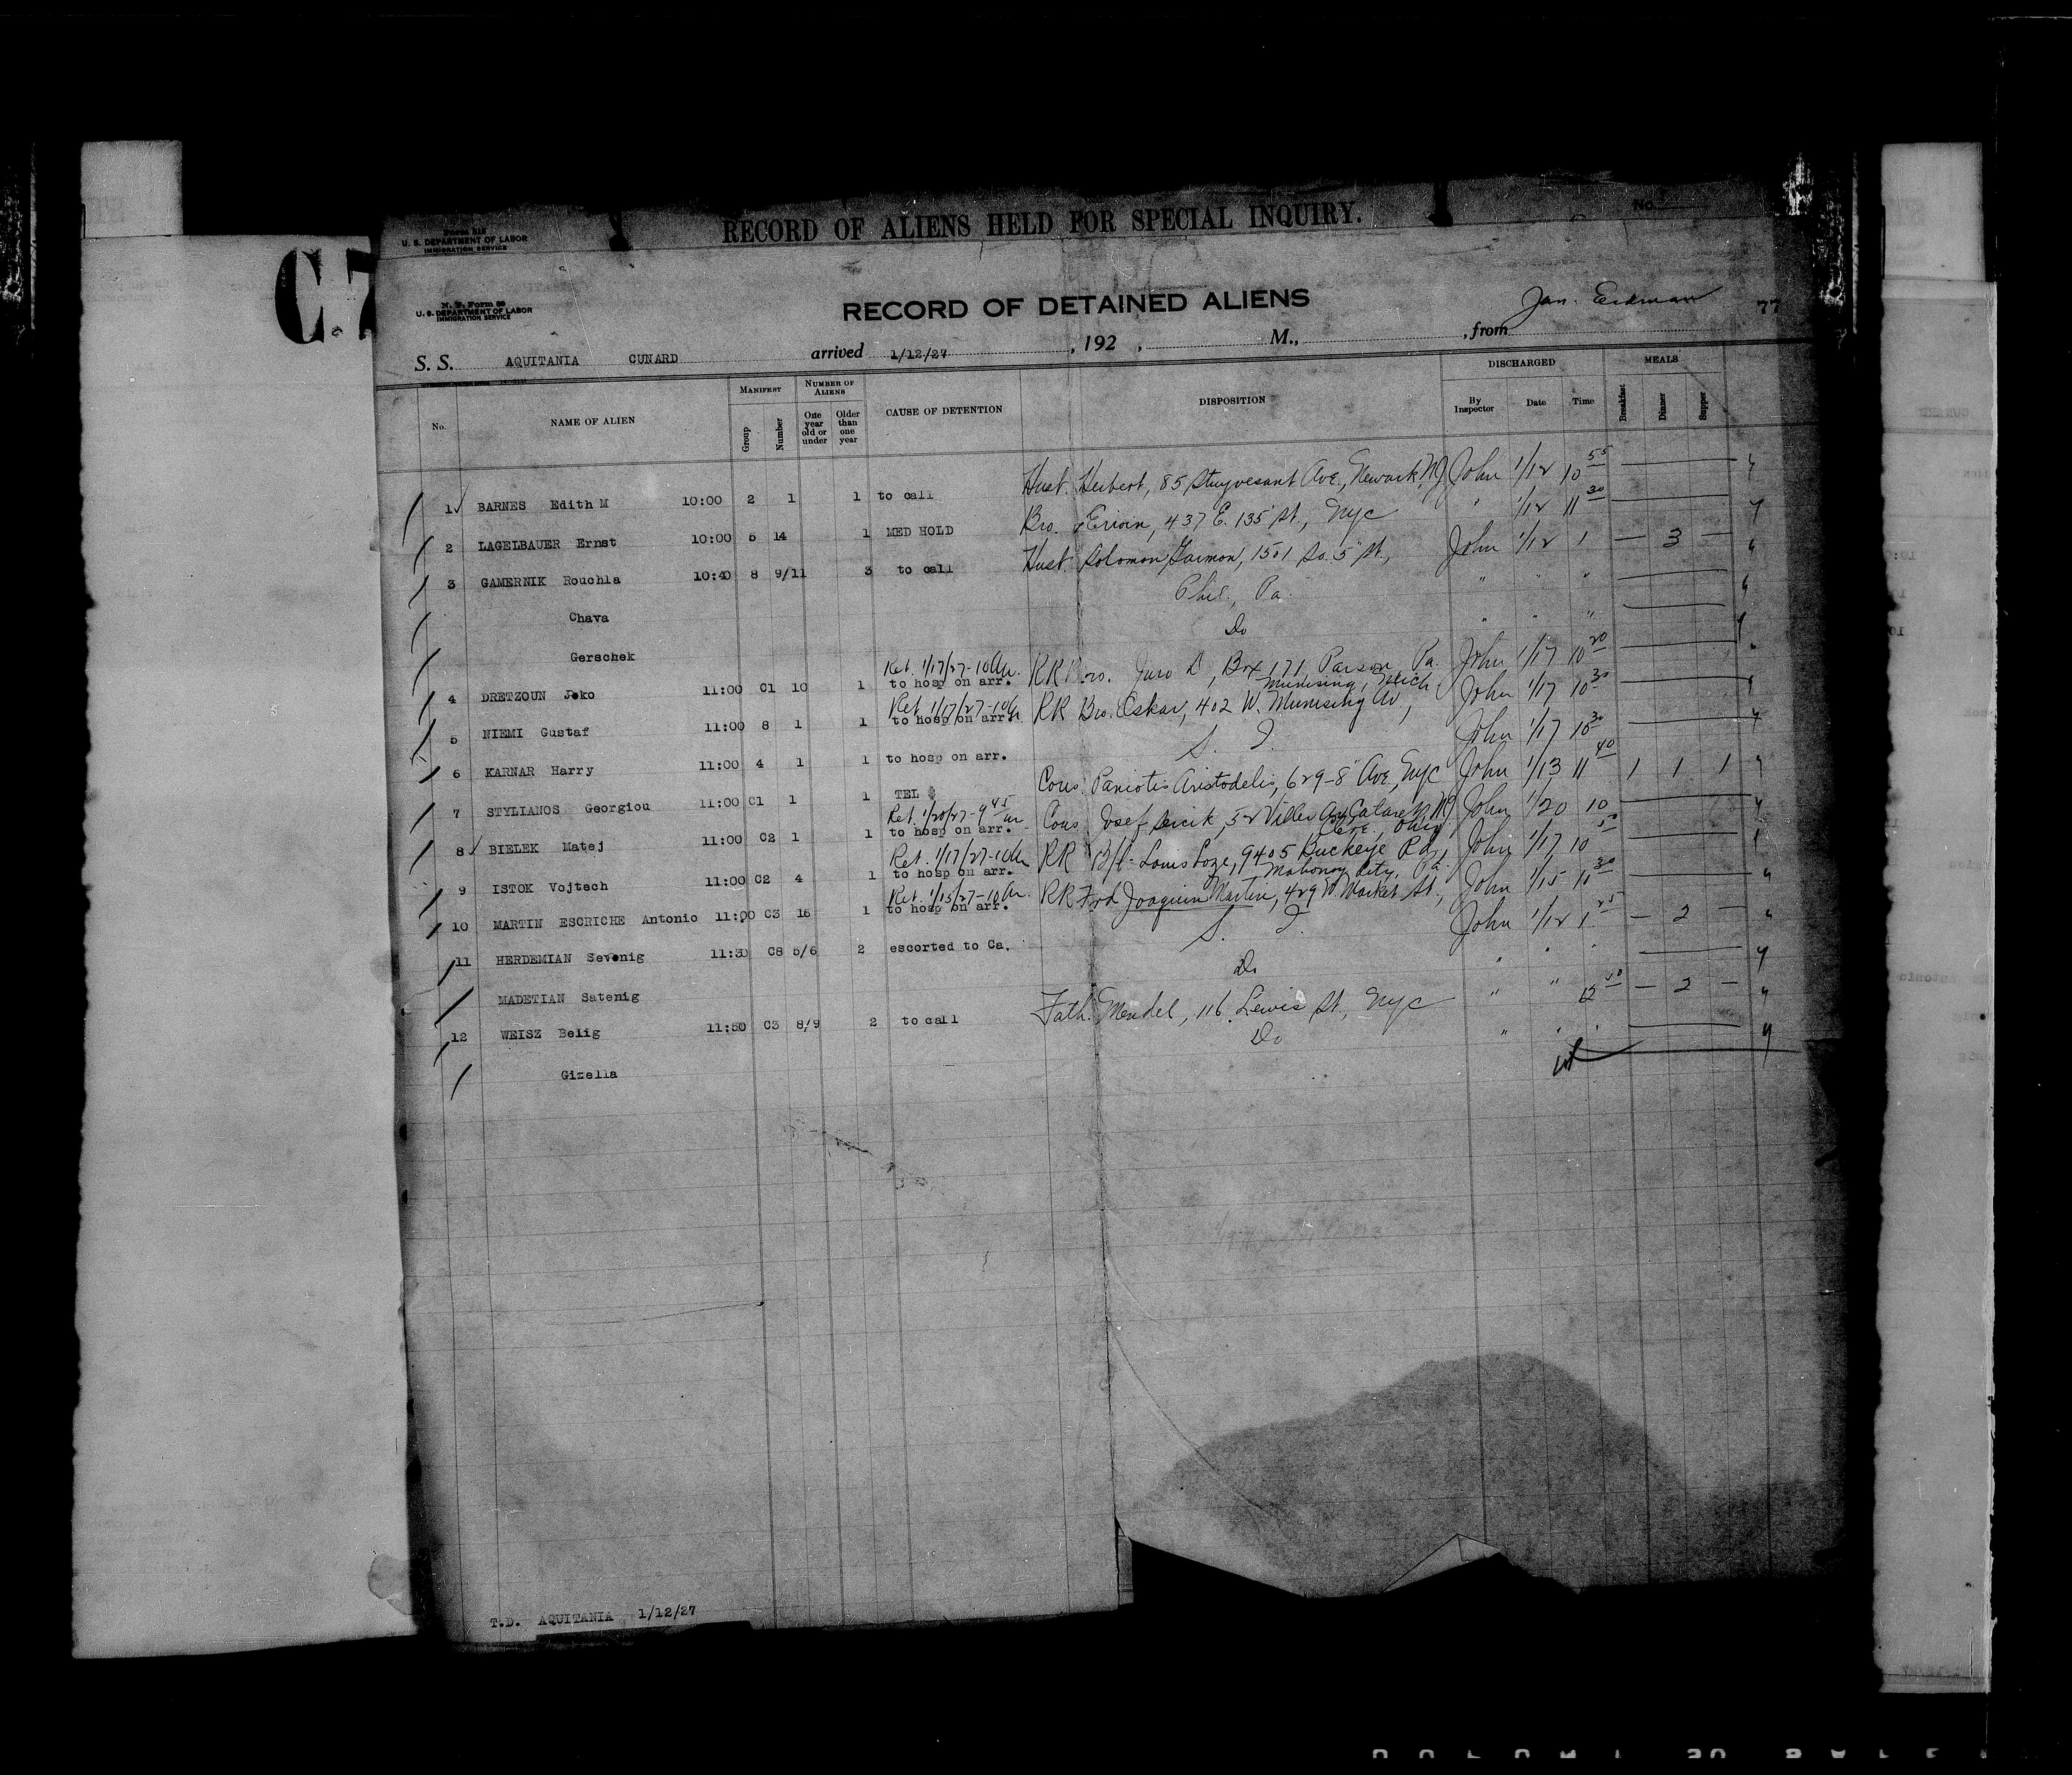 C.7
Form 518
U. S. DEPARTMENT OF LABOR
IMMIGRATION SERVICE
RECORD OF ALIENS HELD FOR SPECIAL INQUIRY.
No.
N. Y. Form 88
U. S. DEPARTMENT OF LABOR
IMMIGRATION SERVICE
RECORD OF DETAINED ALIENS
77
S. S. AQUITANIA CUNARD arrived 1/12/27, 192 , M., , from Jan. Eckman
No. NAME OF ALIEN MANIFEST Group Number NUMBER OF ALIENS One year old or under Older than one year CAUSE OF DETENTION DISPOSITION DISCHARGED By Inspector Date Time MEALS Breakfast Dinner Supper
1 BARNES Edith M 10:00 2 1 1 to call Hust. Herbert, 85 Stuyvesant Ave., Newark NJ John 1/12 10 55
2 LAGELBAUER Ernst 10:00 5 14 1 MED HOLD Bro. Erwin, 437 E. 135 St., Nyc " 1/12 11 30
3 GAMERNIK Rouchla 10:40 8 9/11 3 to call Hust. Solomon Garmon, 1501 So. 5" St., John 1/12 1 — 3 —
Phil., Pa. " " "
Chava Do " "
Gerschek
4 DRETZOUN Joko 11:00 C1 10 1 Ret. 1/17/27-10 Am. to hosp on arr. RR Bro. Juro D, Box 171 Parson, Pa. John 1/17 10 20
5 NIEMI Gustaf 11:00 8 1 1 Ret. 1/17/27-10 to hosp on arr. RR Bro. Oskar, 402 W. Munising Av, Munising, Mich John 1/17 10 30
6 KARNAR Harry 11:00 4 1 1 to hosp on arr. S. I. John 1/17 10 30
7 STYLIANOS Georgiou 11:00 C1 1 1 TEL $ Cous. Paniotis Aristodelis, 629-8" Ave, Nyc John 1/13 11 40 1 1 1
8 BIELEK Matej 11:00 C2 1 1 Ret. 1/20/27-9 45 to hosp on arr. Cous Josef John 1/20 10
9 ISTOK Vojtech 11:00 C2 4 1 Ret. 1/17/27-10 to hosp on arr. RR B/l- Louis Loze, 9405 Buckeye Rd, Cleve, Ohio John 1/17 10 50
10 MARTIN ESCRICHE Antonio 11:00 C3 16 1 Ret. 1/15/27-10 Am. to hosp on arr. RR Frd Joaquin Martin, 429 W Market St., Mahonoy City, Pa. John 1/15 11 30
11 HERDEMIAN Sevenig 11:30 C8 5/6 2 escorted to Ca. S. I. John 1/12 1 25 — 2 —
MADETIAN Satenig Do " " "
12 WEISZ Belig 11:50 C3 8/9 2 to call Fath. Mendel, 116 Lewis St, Nyc " " 12 50 — 2 —
Gizella Do " " "
T.D. AQUITANIA 1/12/27